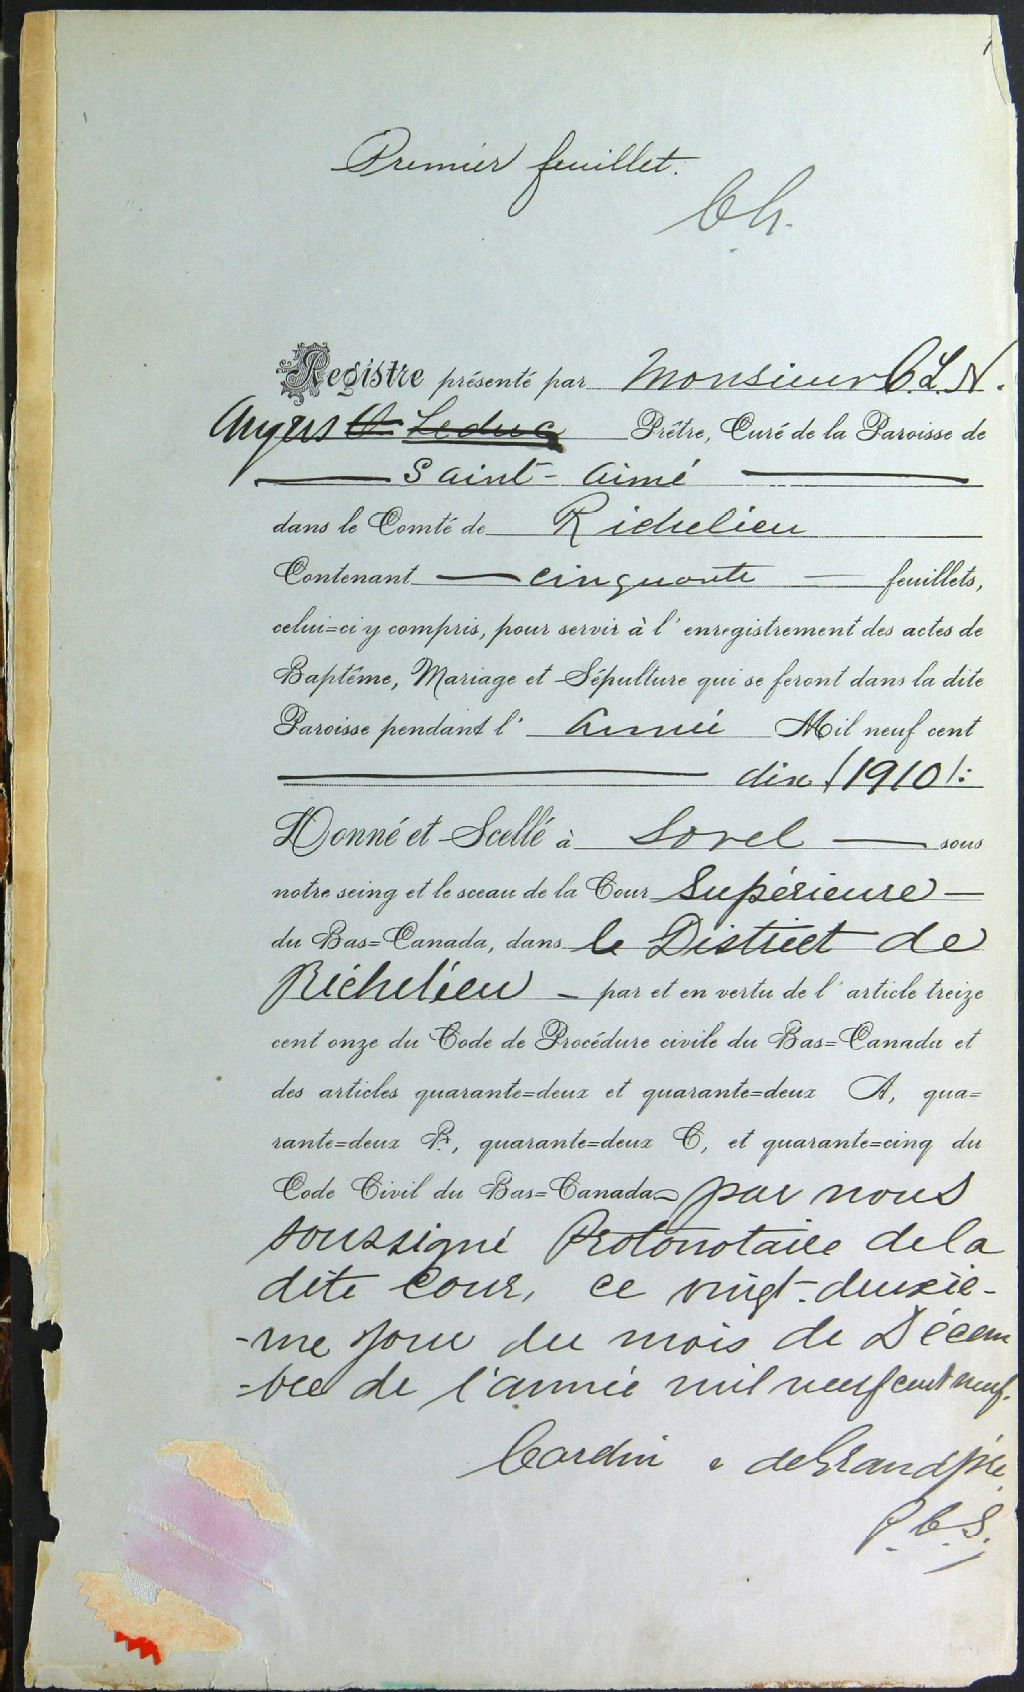 Premier feuillet.
Registre présenté par Monsieur C. L. N.
Angers O. Leduc Prêtre, Curé de la Paroisse de
Saint-Aimé
dans le Comté de Richelieu
Contenant cinquante feuillets,
celui=ci y compris, pour servir à l'enregistrement des actes de
Baptême, Mariage et Sépulture qui se feront dans la dite
Paroisse pendant l'Année Mil neuf cent
dix (1910):
Donné et Scellé à Sorel sous
notre seing et le sceau de la Cour Supérieure
du Bas=Canada, dans le District de
Richelieu par et en vertu de l'article treize
cent onze du Code de Procédure civile du Bas=Canada et
des articles quarante=deux et quarante=deux A, qua=
rante=deux B, quarante=deux C, et quarante=cinq du
Code Civil du Bas=Canada par nous
soussigné Protonotaire de la
dite Cour, ce vingt-deuxiè-
-me jour du mois de Décem
=bre de l'année mil neuf cent neuf.
Cardin & deGrandpré
P.C.S.